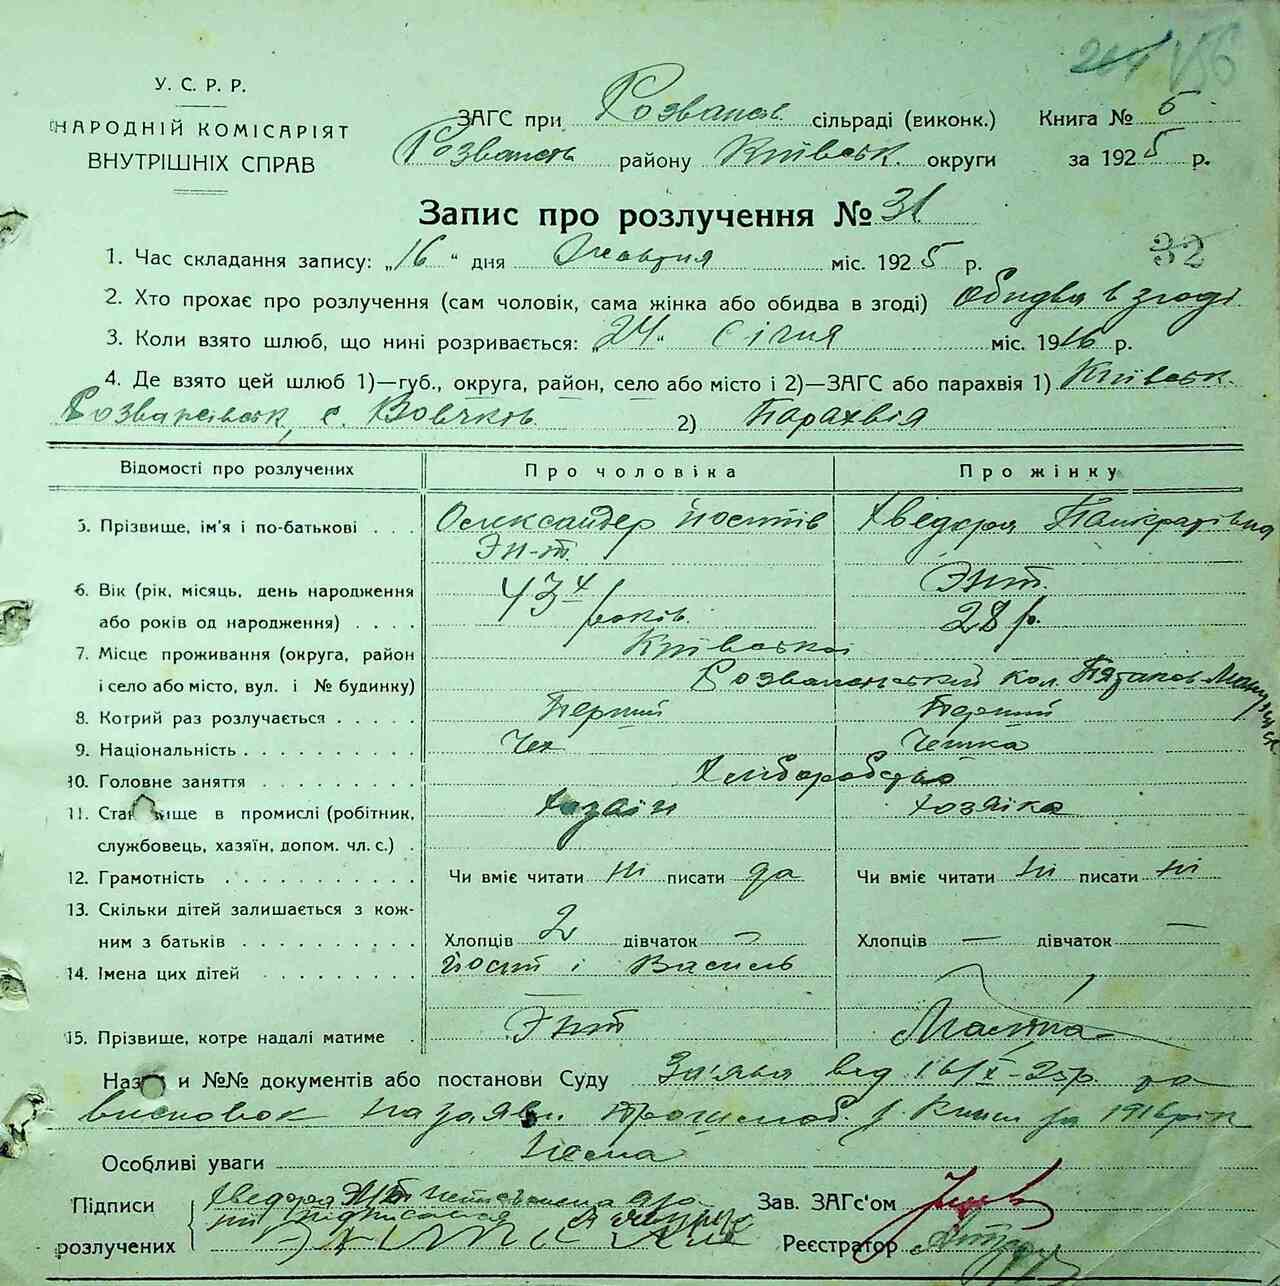 У. С. Р. Р.
НАРОДНІЙ КОМІСАРІЯТ
ВНУТРІШНІХ СПРАВ
ЗАГС при Розважів сільраді (виконк.) Книга № 6
Розважів району Київськ. округи за 1925 р.
Запис про розлучення № 31
32
1. Час складання запису: „16“ дня Жовтня міс. 1925 р.
2. Хто прохає про розлучення (сам чоловік, сама жінка або обидва в згоді) Обидва в згоді
3. Коли взято шлюб, що нині розривається: „24“ Січня міс. 1916 р.
4. Де взято цей шлюб 1)—губ., округа, район, село або місто і 2)—ЗАГС або парахвія 1) Київськ.
Розважівськ, с. Вовчків. 2) Парахвія
Відомості про розлучених Про чоловіка Про жінку
5. Прізвище, ім'я і по-батькові . . . Олександер Йосипів Хведора Панкратівна
6. Вік (рік, місяць, день народження 43 Энт.
або років од народження) . . . . років. 28 р.
7. Місце проживання (округа, район Київської
і село або місто, вул. і № будинку) кол.
8. Котрий раз розлучається . . . . . Перший Перший
9. Національність . . . . . . . . . . Чех Чешка
10. Головне заняття Хліборобство
11. Становище в промислі (робітник, Хазяїн Хозяйка
службовець, хазяїн, допом. чл. с.) .
12. Грамотність . . . . . . . . . . Чи вміє читати ні писати да Чи вміє читати ні писати ні
13. Скільки дітей залишається з кож-
ним з батьків . . . . . . . . . . Хлопців 2 дівчаток — Хлопців — дівчаток —
14. Імена цих дітей . . . . . . . . . Йосип і Василь
15. Прізвище, котре надалі матиме . Энт
Назви и №№ документів або постанови Суду Заява від 16/X-25р. та
висновок на заяви за 1916 рік
Особливі уваги Нема
Підписи Хведора Энт
розлучених
Зав. ЗАГс'ом
Реєстратор